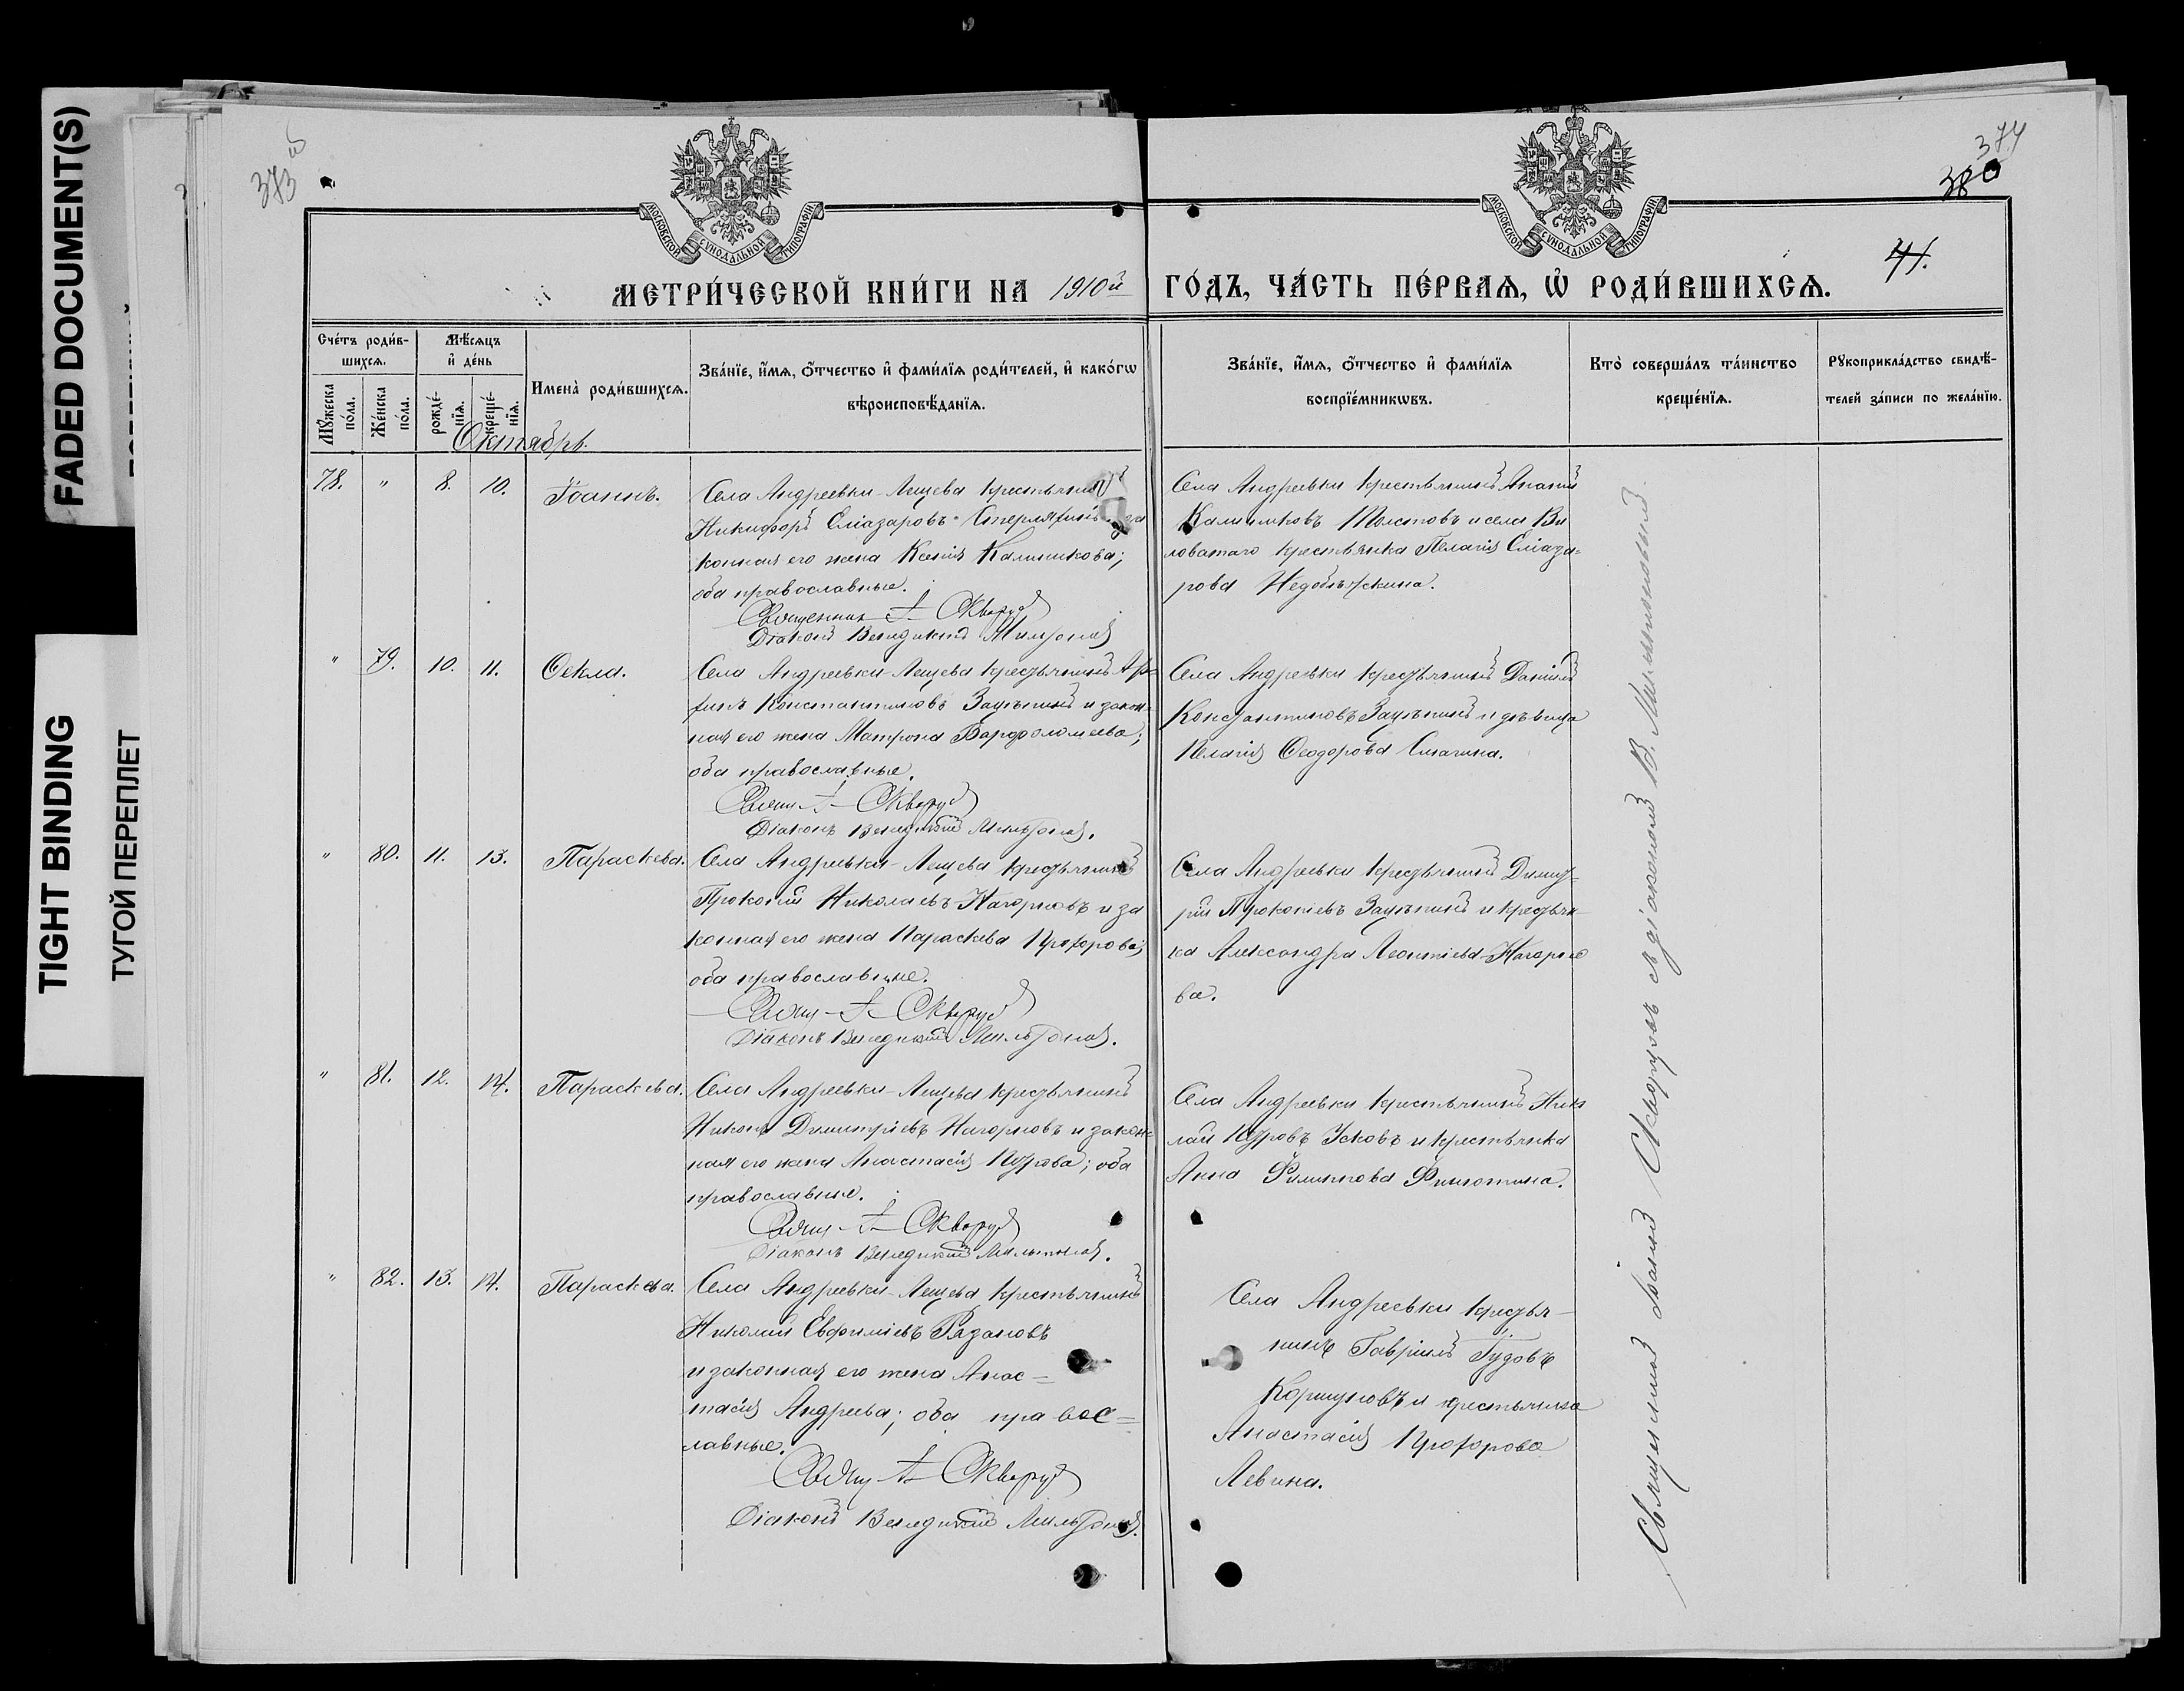 FADED DOCUMENT(S)
TIGHT BINDING
ТУГОЙ ПЕРЕПЛЕТ
373 об
374
380
41.
МОСКОВСКОЙ СѴНОДАЛЬНОЙ ТИПОГРАФІИ
МОСКОВСКОЙ СѴНОДАЛЬНОЙ ТИПОГРАФІИ
МЕТРИ́ЧЕСКОЙ КНИ́ГИ НА 1910й ГО́ДЪ, ЧА́СТЬ ПЕ́РВАѦ, Ѡ҆ РОДИ́ВШИХСѦ.
Сче́тъ роди́в-
шихсѧ.
Мѣ́сѧцъ
и҆ де́нь
Мꙋ́жеска
по́ла.
Же́нска
по́ла.
рожде́-
нїѧ.
креще́-
нїѧ.
Имена̀ роди́вшихсѧ.
Зва́нїе, и҆́мѧ, ѻ҆́тчество и҆ фами́лїѧ роди́телей, и҆ како́гѡ
вѣроисповѣ́данїѧ.
Зва́нїе, и҆́мѧ, ѻ҆́тчество и҆ фами́лїѧ
воспрїе́мникѡвъ.
Кто̀ соверша́лъ та́инство
креще́нїѧ.
Рꙋкоприкла́дство свидѣ́-
телей за́писи по жела́нїю.
Октябрь.
78. " 8. 10. Іоаннъ.
Села Андреевки-Лещева крестьянинъ
Никифоръ Еліазаровъ
конная его жена Ксенія Калинникова;
оба православные.
Священник І. Скворцов
Діаконъ Венедиктъ
Села Андреевки крестьянинъ Ананій
Калинниковъ Толстовъ и села Ви
ловатаго крестьянка Пелагія Еліаза-
рова
" 79. 10. 11. Ѳекла.
Села Андреевки-Лещева крестьянинъ
Константиновъ и закон-
ная его жена Матрона Варфоломеева;
оба православные.
Свящ. І. Скворцов
Діаконъ Венедиктъ
Села Андреевки крестьянинъ Даніилъ
Константиновъ и дѣвица
Пелагія Ѳеодорова
" 80. 11. 13. Параскева.
Села Андреевки-Лещева крестьянинъ
Прокопій Николаевъ Нагорновъ и за
конная его жена Параскева Прохорова;
оба православные.
Свящ. І. Скворцов
Діаконъ Венедиктъ
Села Андреевки крестьянинъ Димит-
рій Прокопіевъ и крестьян-
ка Александра Леонтіева Нагорно
ва.
" 81. 12. 14. Параскева.
Села Андреевки-Лещева крестьянинъ
Никонъ Димитріевъ Нагорновъ и закон-
ная его жена Анастасія Петрова; оба
православные.
Свящ. І. Скворцов
Діаконъ Венедиктъ
Села Андреевки крестьянинъ Нико
лай Петровъ Усковъ и крестьянка
Анна Филиппова
" 82. 13. 14. Параскева.
Села Андреевки-Лещева крестьянинъ
Николай Евфиміевъ Рязановъ
и законная его жена Анас-
тасія Андреева; оба правос-
лавные.
Свящ. І. Скворцов
Діаконъ Венедиктъ
Села Андреевки крестья-
нинъ Гавріилъ
Коршуновъ и крестьянка
Анастасія Прохорова
Левина.
Священникъ Іоаннъ Скворцовъ съ діакономъ В.